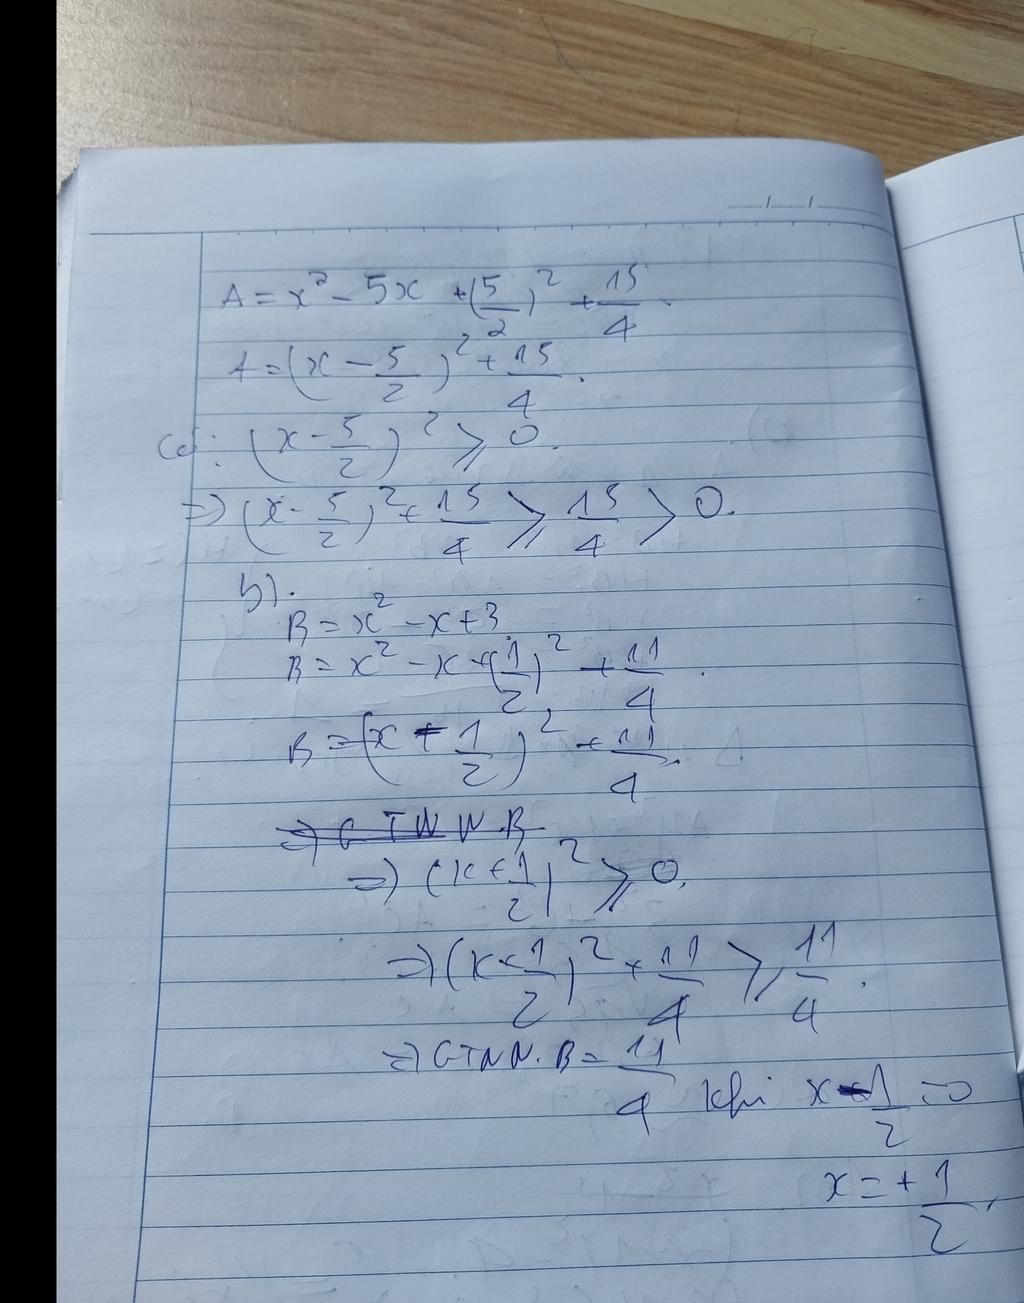 A = x² - 5x + (5/2)² + 15/4.
A = (x - 5/2)² + 15/4.
Có: (x - 5/2)² ⩾ 0.
=> (x - 5/2)² + 15/4 ⩾ 15/4 > 0.
b).
B = x² - x + 3.
B = x² - x + (1/2)² + 11/4.
B = (x - 1/2)² + 11/4.
=> GTNN.B
=> (x + 1/2)² ⩾ 0.
=> (x + 1/2)² + 11/4 ⩾ 11/4.
=> GTNN.B = 11/4 khi x - 1/2 = 0
x = + 1/2.